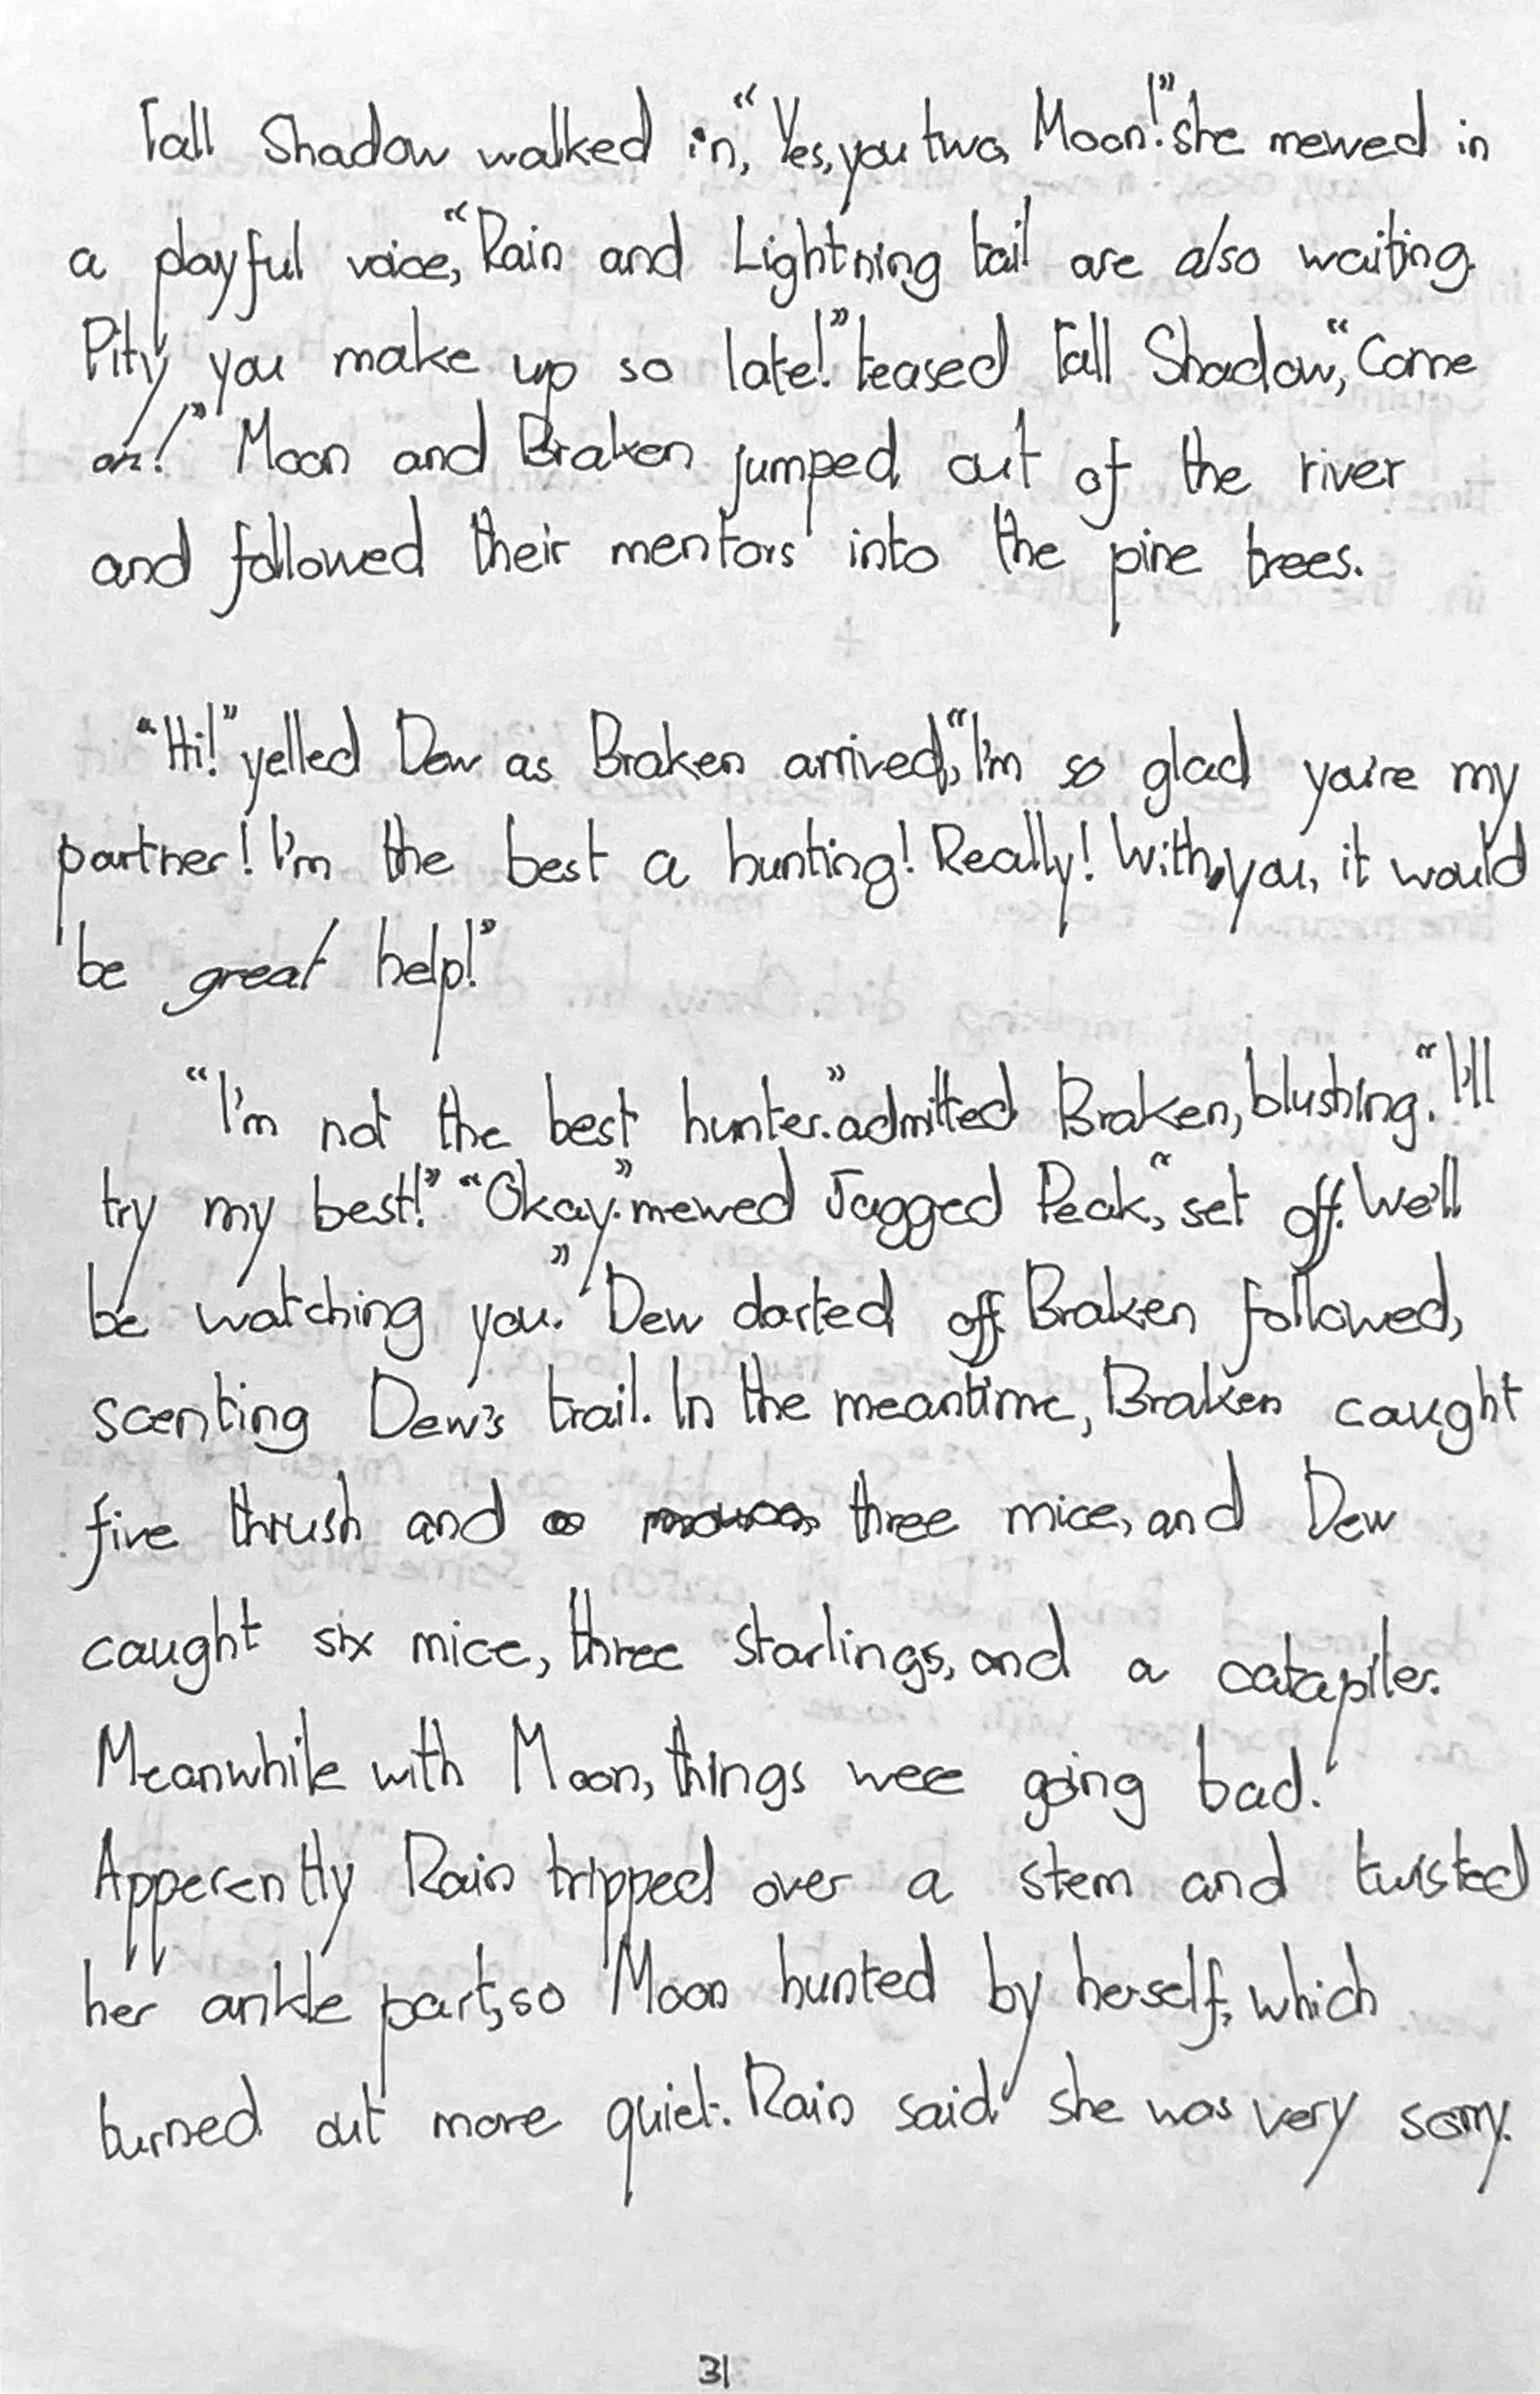 Tall Shadow walked in, "Yes, you two, Moon!" she mewed in
a playful voice, "Rain and Lightning tail are also waiting.
Pity you make up so late!" teased Tall Shadow, "Come
on!" Moon and Braken jumped out of the river
and followed their mentors into the pine trees.
"Hi!" yelled Dew as Braken arrived, "I'm so glad you're my
partner! I'm the best a hunting! Really! With you, it would
be great help!"
"I'm not the best hunter." admitted Braken, blushing. "I'll
try my best!" "Okay." mewed Jagged Peak, "set off. We'll
be watching you." Dew darted off. Braken followed,
scenting Dew's trail. In the meantime, Braken caught
five thrush and three mice, and Dew
caught six mice, three starlings, and a catapiler.
Meanwhile with Moon, things were going bad.
Apperently Rain tripped over a stem and twisted
her ankle part, so Moon hunted by herself, which
turned out more quiet. Rain said she was very sorry.
31